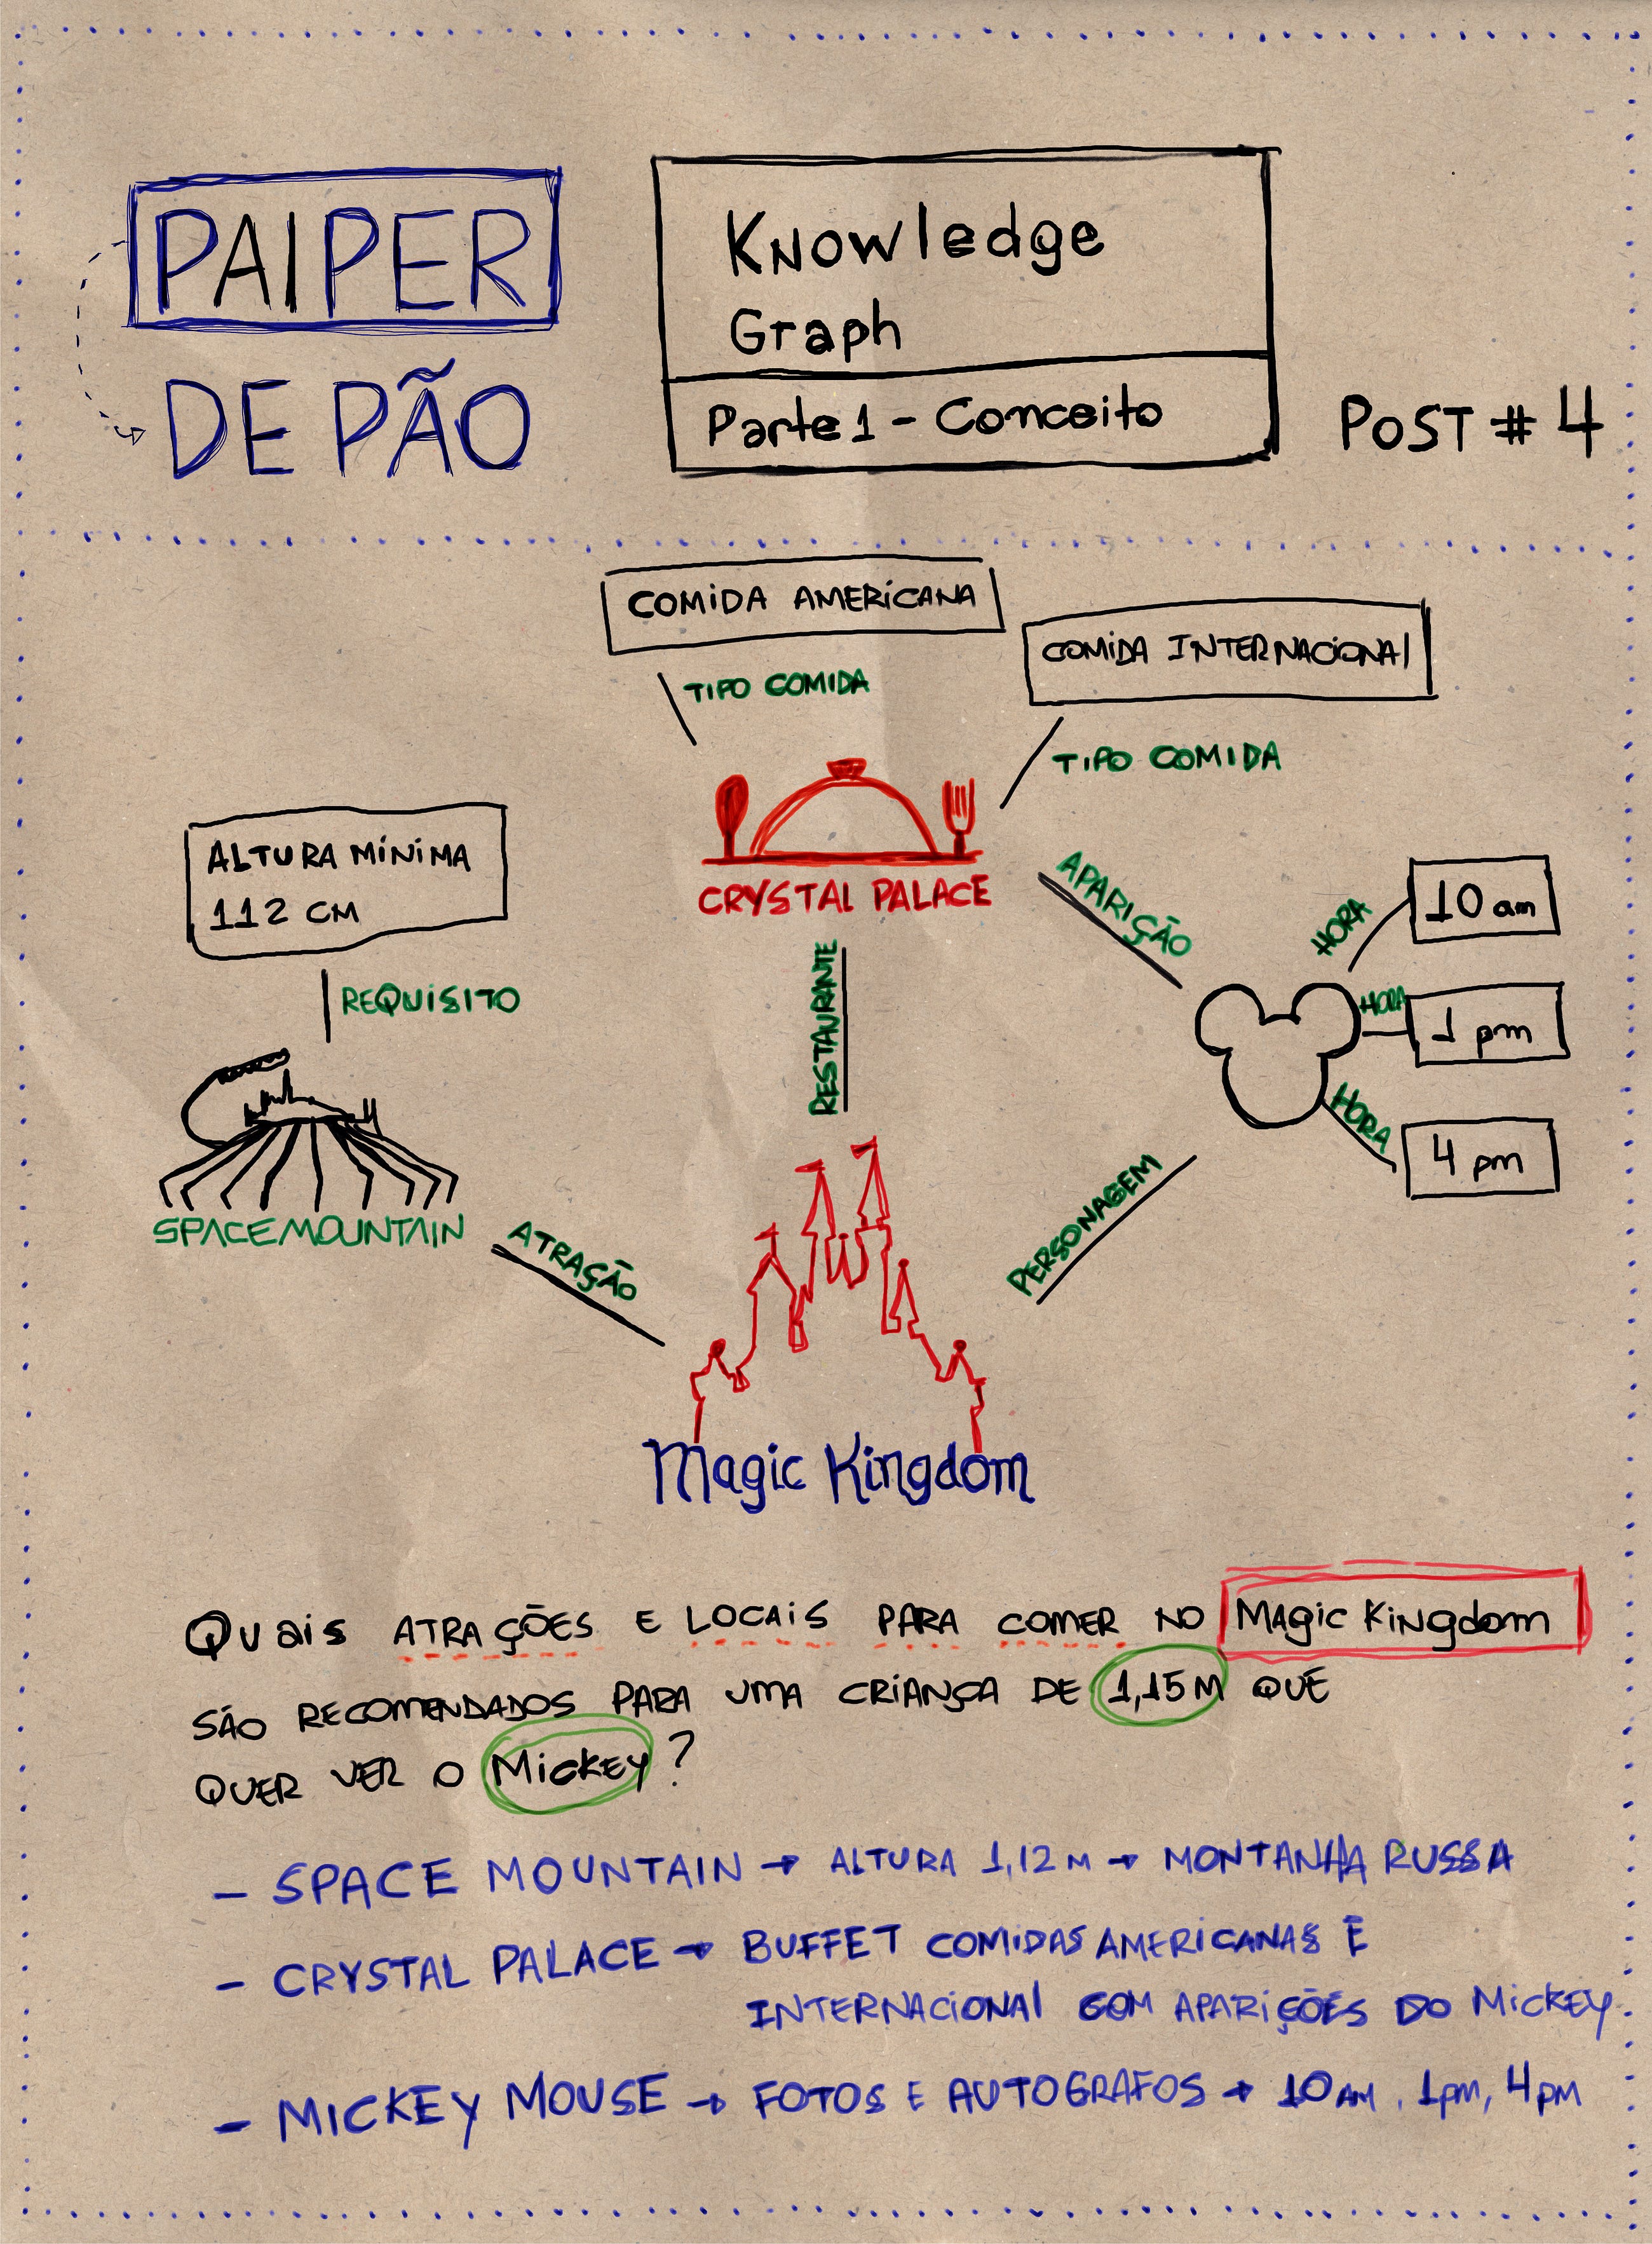 PAIPER
DE PÃO
Knowledge
Graph
Parte 1 - Conceito
POST # 4
COMIDA AMERICANA
COMIDA INTERNACIONAL
TIPO COMIDA
TIPO COMIDA
ALTURA MÍNIMA
112 CM
REQUISITO
CRYSTAL PALACE
APARIÇÃO
HORA
10 am
HORA
1 pm
HORA
4 pm
RESTAURANTE
SPACE MOUNTAIN
ATRAÇÃO
PERSONAGEM
Magic Kingdom
QUAIS ATRAÇÕES E LOCAIS PARA COMER NO MAGIC KINGDOM
SÃO RECOMENDADOS PARA UMA CRIANÇA DE 1,15M QUE
QUER VER O MICKEY?
- SPACE MOUNTAIN → ALTURA 1,12 M → MONTANHA RUSSA
- CRYSTAL PALACE → BUFFET COMIDAS AMERICANAS E
INTERNACIONAL COM APARIÇÕES DO MICKEY
- MICKEY MOUSE → FOTOS E AUTOGRAFOS → 10 AM, 1pm, 4pm